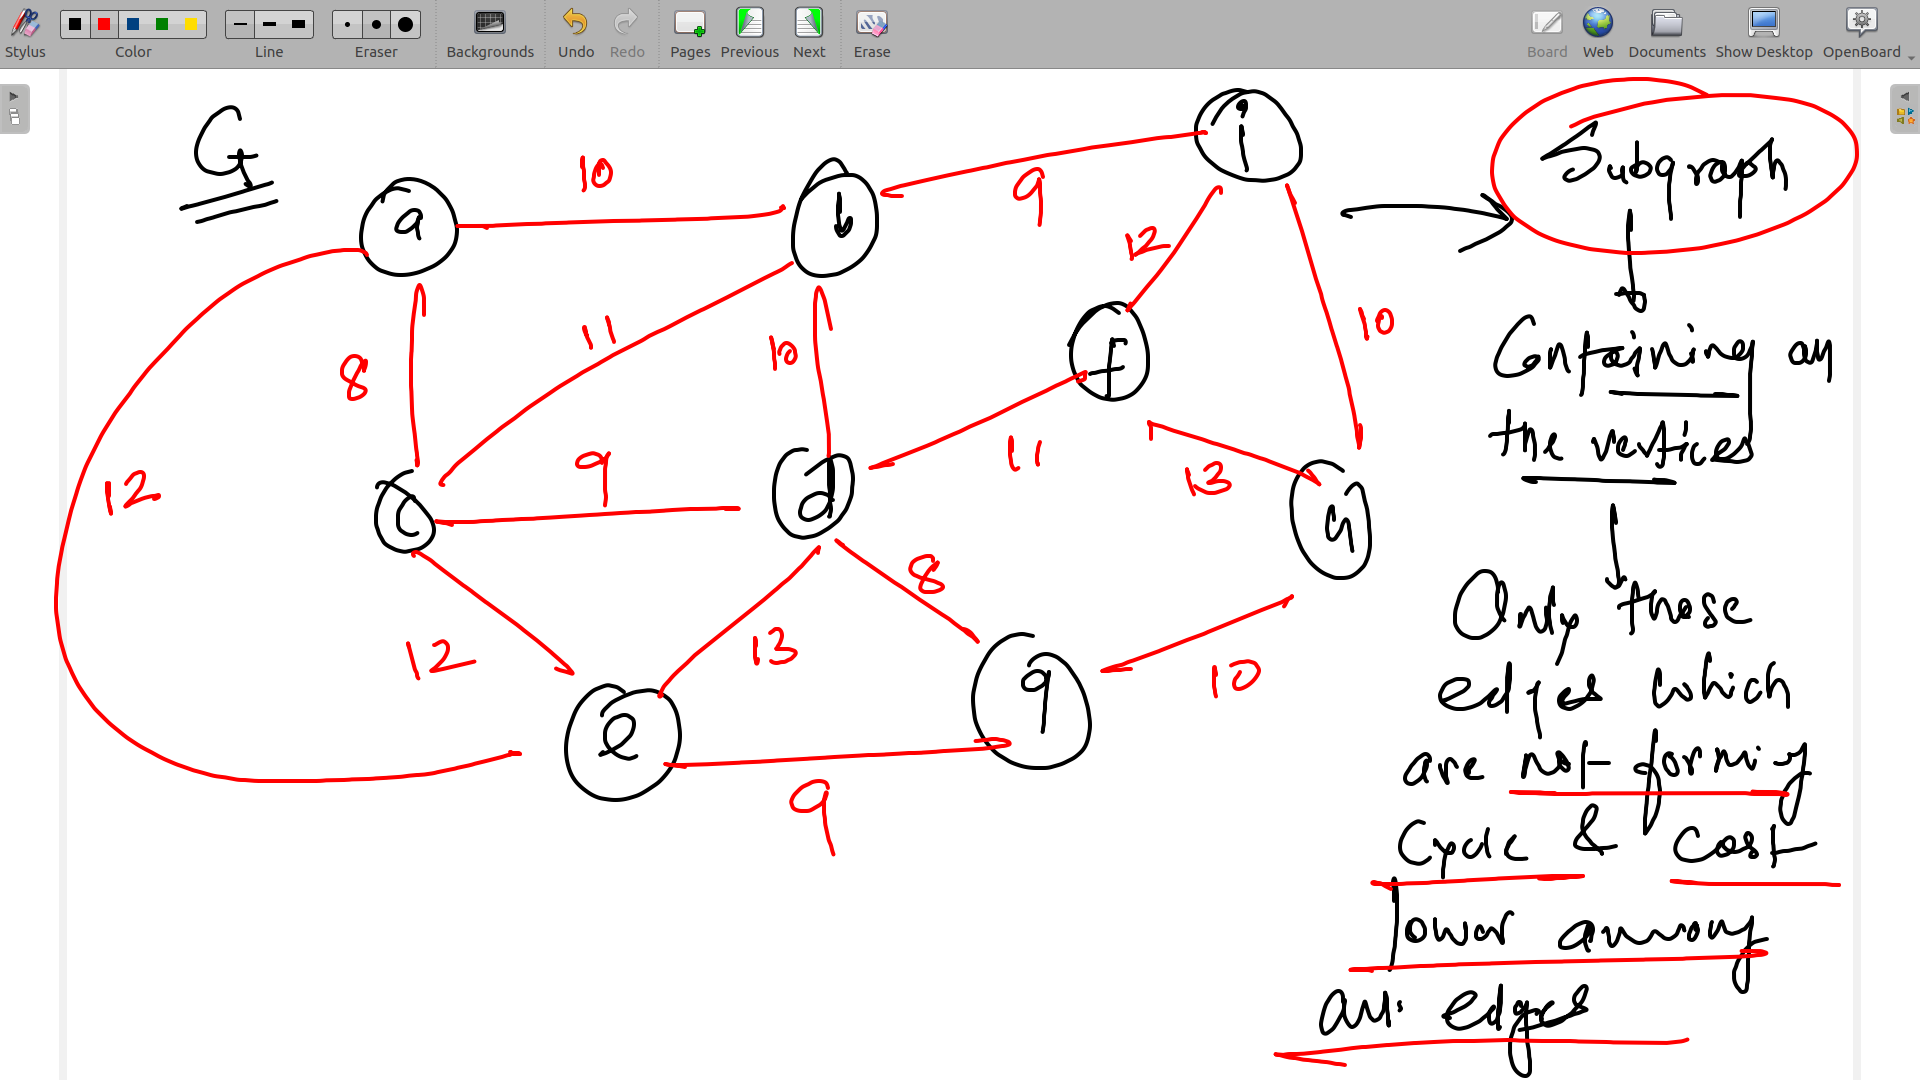 Stylus
Color
Line
Eraser
Backgrounds
Undo
Redo
Pages
Previous
Next
Erase
Board
Web
Documents
Show Desktop
OpenBoard
G
a
10
b
9
i
12
10
8
11
10
f
11
13
12
c
9
d
h
12
13
8
g
10
e
9
Subgraph
Containing all
the vertices
Only those
edges which
are not forming
Cycle & Cost
lower among
all edges